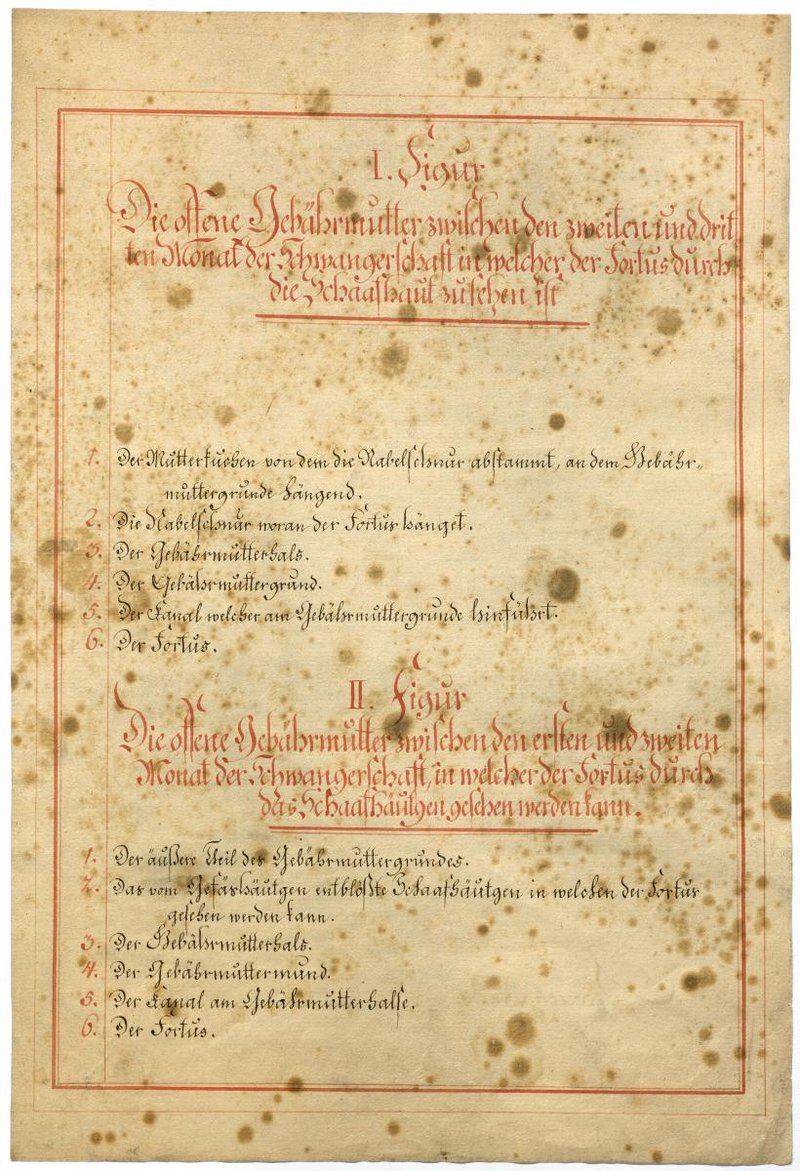 I. Figur
Die offene Gebährmutter zwischen den zweiten und drit
ten Monat der Schwangerschaft in welcher der Foetus durch
die Schaafhaut zu sehen ist
1. Der Mutterkuchen von dem die Nabelschnur abstammt, an dem Gebähr-
muttergrunde hängend.
2. Die Nabelschnur woran der Foetus hänget.
3. Der Gebährmutterhals.
4. Der Gebährmuttergrund.
5. Der Kanal welcher am Gebährmuttergrunde hinführt.
6. Der Foetus.
II. Figur
Die offene Gebährmutter zwischen den ersten und zweiten
Monat der Schwangerschaft, in welcher der Foetus durch
das Schaafhäutgen gesehen werden kann.
1. Der äußere Theil des Gebährmuttergrundes.
2. Das vom Gefäshäutgen entblößte Schaafhäutgen in welchen der Foetus
gesehen werden kann.
3. Der Gebährmutterhals.
4. Der Gebährmuttermund.
5. Der Kanal am Gebährmutterhalse.
6. Der Foetus.